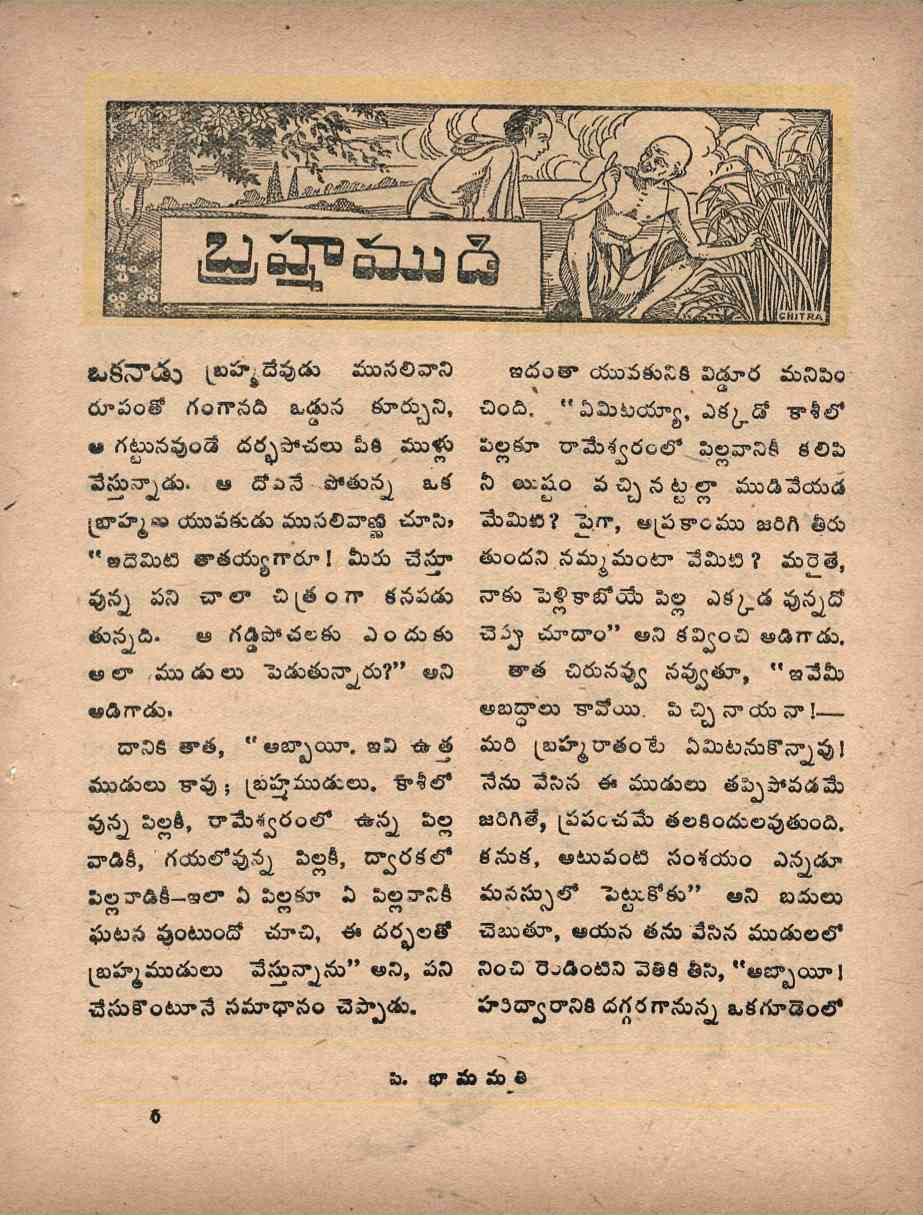 బ్రహ్మముడి
CHITRA
ఒకనాడు బ్రహ్మదేవుడు ముసలివాని
రూపంతో గంగానది ఒడ్డున కూర్చుని,
ఆ గట్టునవుండే దర్భపోచలు పీకి ముళ్లు
వేస్తున్నాడు. ఆ దోవనే పోతున్న ఒక
బ్రాహ్మణ యువకుడు ముసలివాణ్ణి చూసి,
“ఇదెమిటి తాతయ్యగారూ! మీరు చేస్తూ
వున్న పని చాలా చిత్రంగా కనపడు
తున్నది. ఆ గడ్డిపోచలకు ఎందుకు
అలా ముడులు పెడుతున్నారు?” అని
అడిగాడు.
దానికి తాత, “అబ్బాయీ. ఇవి ఉత్త
ముడులు కావు; బ్రహ్మముడులు. కాశీలో
వున్న పిల్లకీ, రామేశ్వరంలో ఉన్న పిల్ల
వాడికీ, గయలోవున్న పిల్లకీ, ద్వారకలో
పిల్లవాడికీ—ఇలా ఏ పిల్లకూ ఏ పిల్లవానికీ
ఘటన వుంటుందో చూచి, ఈ దర్భలతో
బ్రహ్మముడులు వేస్తున్నాను” అని, పని
చేసుకొంటూనే సమాధానం చెప్పాడు.
ఇదంతా యువకునికి విడ్డూర మనిపిం
చింది. “ఏమిటయ్యా, ఎక్కడో కాశీలో
పిల్లకూ రామేశ్వరంలో పిల్లవానికీ కలిపి
నీ యిష్టం వచ్చినట్టల్లా ముడివేయడ
మేమిటి? పైగా, ఆప్రకారము జరిగి తీరు
తుందని నమ్మమంటా వేమిటి? మరైతే,
నాకు పెళ్లికాబోయే పిల్ల ఎక్కడ వున్నదో
చెప్పు చూదాం” అని కవ్వించి అడిగాడు.
తాత చిరునవ్వు నవ్వుతూ, “ఇవేమీ
అబద్ధాలు కావోయి. పిచ్చినాయనా!—
మరి బ్రహ్మరాతంటే ఏమిటనుకొన్నావు!
నేను వేసిన ఈ ముడులు తప్పిపోవడమే
జరిగితే, ప్రపంచమే తలకిందులవుతుంది.
కనుక, అటువంటి సంశయం ఎన్నడూ
మనస్సులో పెట్టుకోకు” అని బదులు
చెబుతూ, ఆయన తను వేసిన ముడులలో
నించి రెండింటిని వెతికి తీసి, “అబ్బాయీ!
హరిద్వారానికి దగ్గరగానున్న ఒకగూడెంలో
పి. భామమతి
6